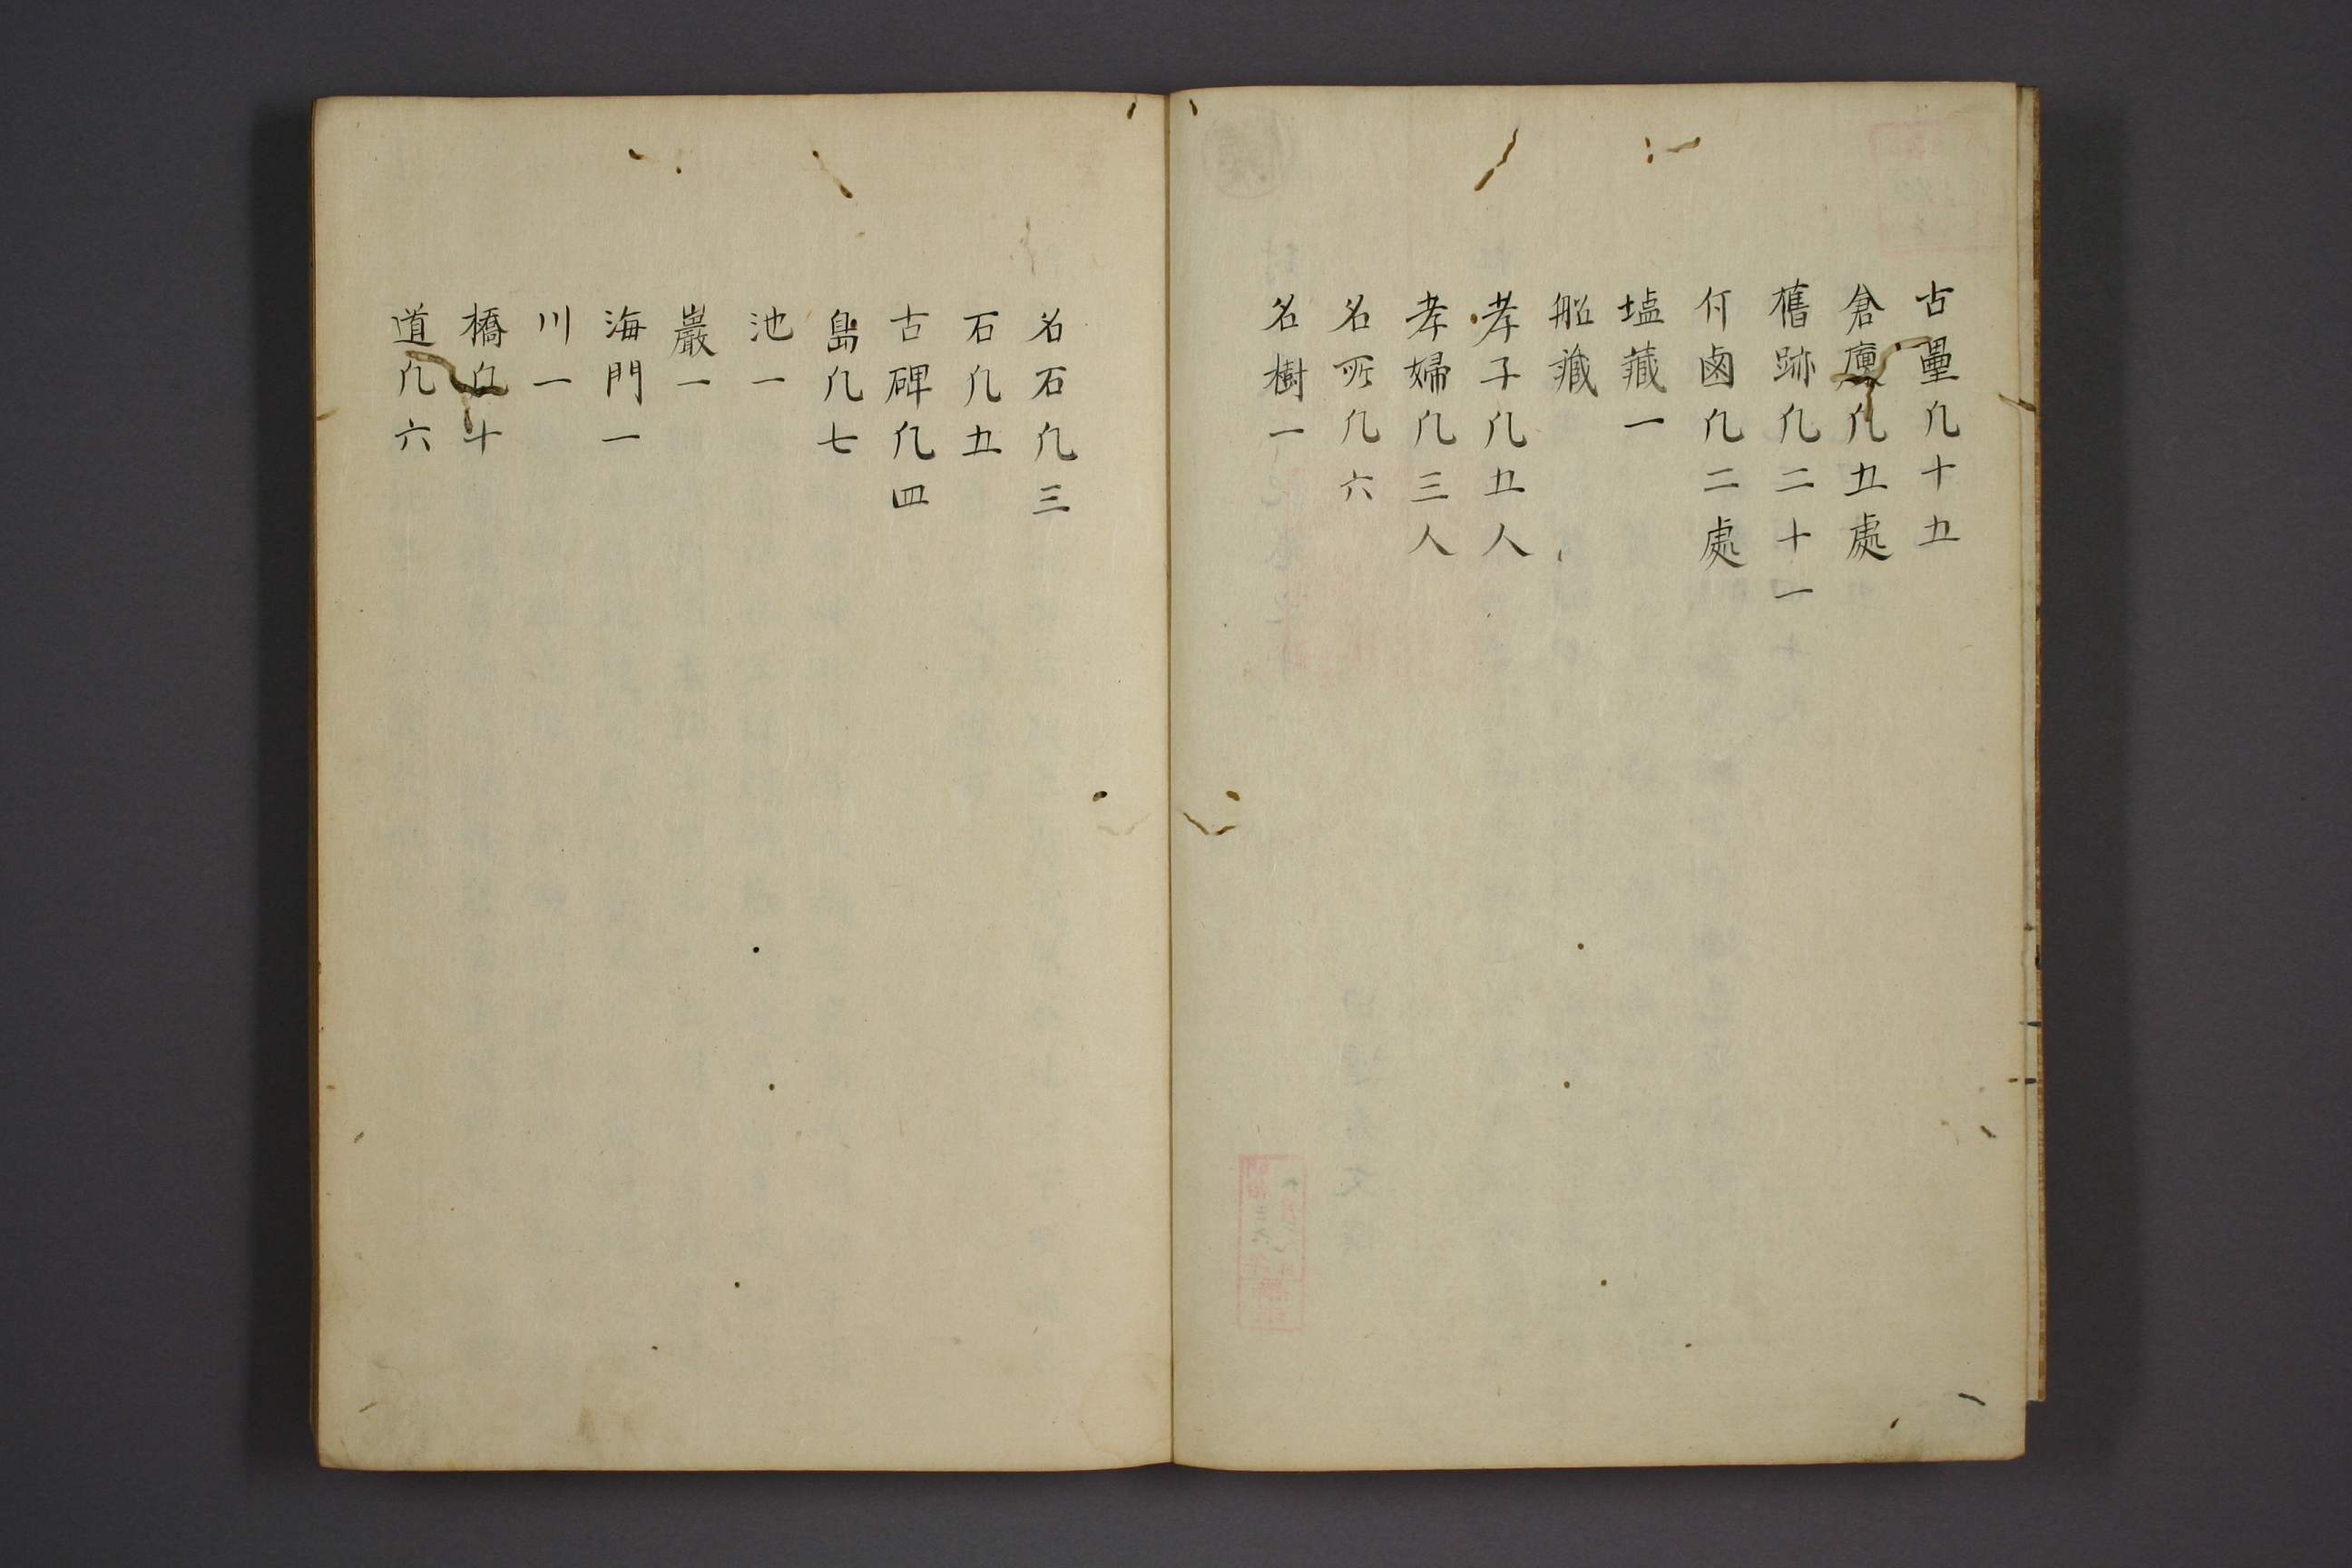 古壘凡十五
倉廩凡五處
舊跡凡二十一
斥鹵凡二處
塩藏一
船藏
孝子凡五人
孝婦凡三人
名所凡六
名樹一
名石凡三
石凡五
古碑凡四
島凡七
池一
巖一
海門一
川一
橋凡十
道凡六